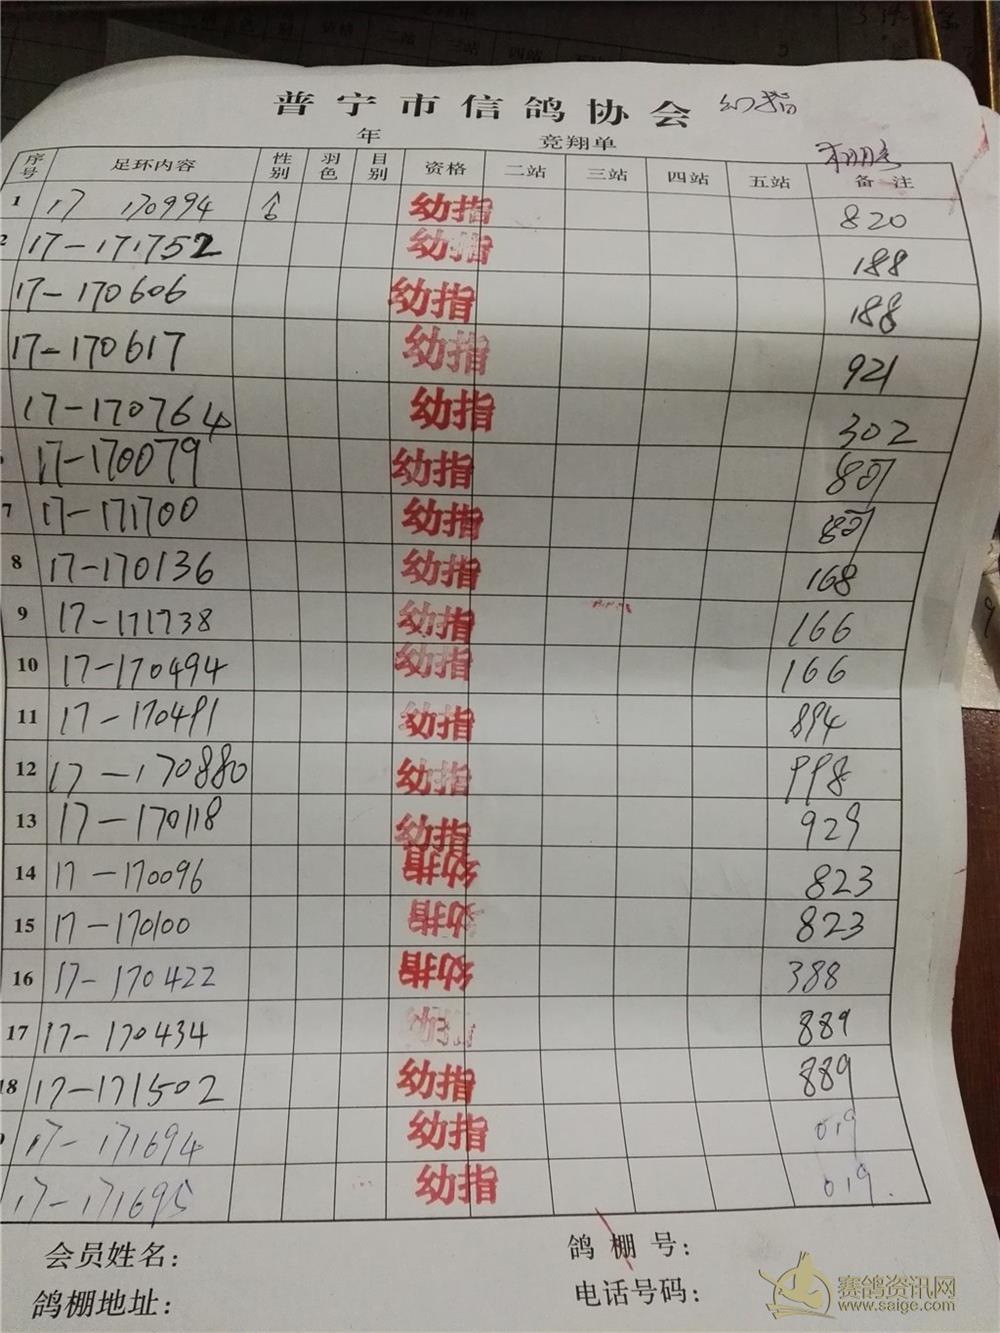 普宁市信鸽协会 幼指
年 竞翔单
序号 足环内容 性别 羽色 目别 资格 二站 三站 四站 五站 备注
1 17 170994 幼指 820
2 17-171752 幼指 188
17-170606 幼指 188
17-170617 幼指 921
17-170764 幼指 302
17-170079 幼指 807
7 17-171700 幼指 807
8 17-170136 幼指 168
9 17-171738 幼指 166
10 17-170494 幼指 166
11 17-170491 幼指 894
12 17-170880 幼指 998
13 17-170118 幼指 929
14 17-170096 幼指 823
15 17-170100 幼指 823
16 17-170422 幼指 388
17 17-170434 幼指 889
18 17-171502 幼指 889
17-171694 幼指 019
17-171695 幼指 019.
会员姓名： 鸽棚号：
鸽棚地址： 电话号码：
赛鸽资讯网
www.saige.com